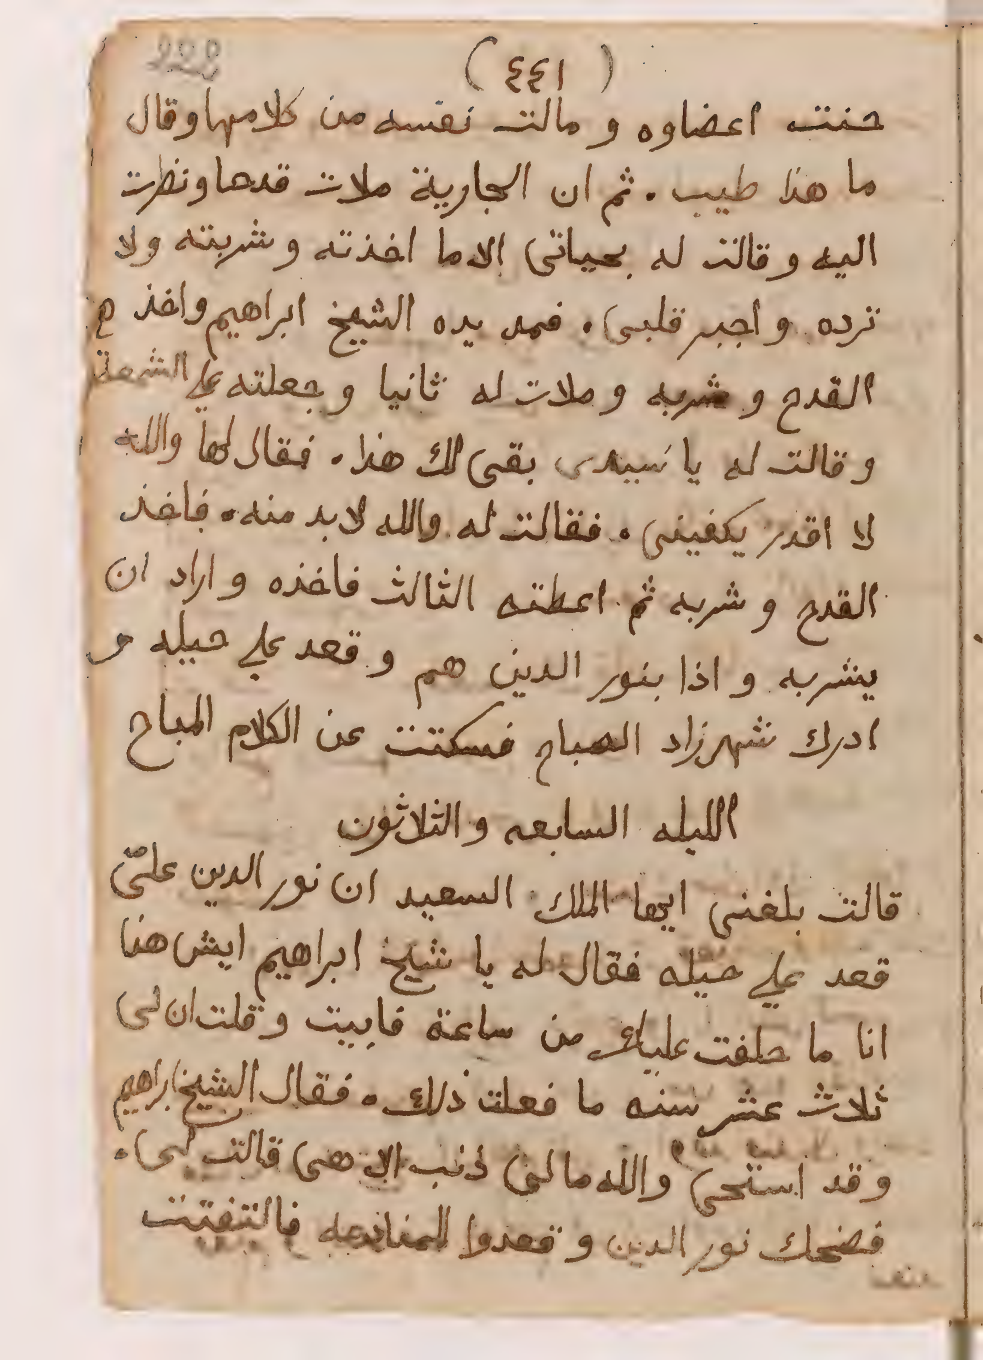 222
(٤٤١)
حنت اعضاوه و مالت نفسه من كلامها وقال
ما هذا طيب . ثم ان الجارية ملات قدحا ونظرت
اليه و قالت له بحياتى الاما اخذته و شربته ولا
ترده و اجبر قلبى . فمد يده الشيخ ابراهيم واخذ
القدح و شربه و ملات له ثانيا و جعلته على الشمعة
و قالت له يا سيدى بقى لك هذا . فقال لها والله
لا اقدر يكفينى . فقالت له والله لابد منه . فاخذ
القدح و شربه ثم اعطته الثالث فاخذه و اراد ان
يشربه و اذا بنور الدين هم و قعد علي حيله و
ادرك شهرزاد الصباح فسكتت عن الكلام المباح
الليله السابعه و الثلاثون
قالت بلغنى ايها الملك السعيد ان نور الدين على
قعد علي حيله فقال له يا شيخ ابراهيم ايش هذا
انا ما حلفت عليك من ساعة فابيت و قلت ان لى
ثلاث عشر سنه ما فعلت ذلك . فقال الشيخ ابراهيم
و قد استحى والله مالى ذنب الا هى قالت لى .
فضحك نور الدين و قعدوا للمنادمه فالتفتت